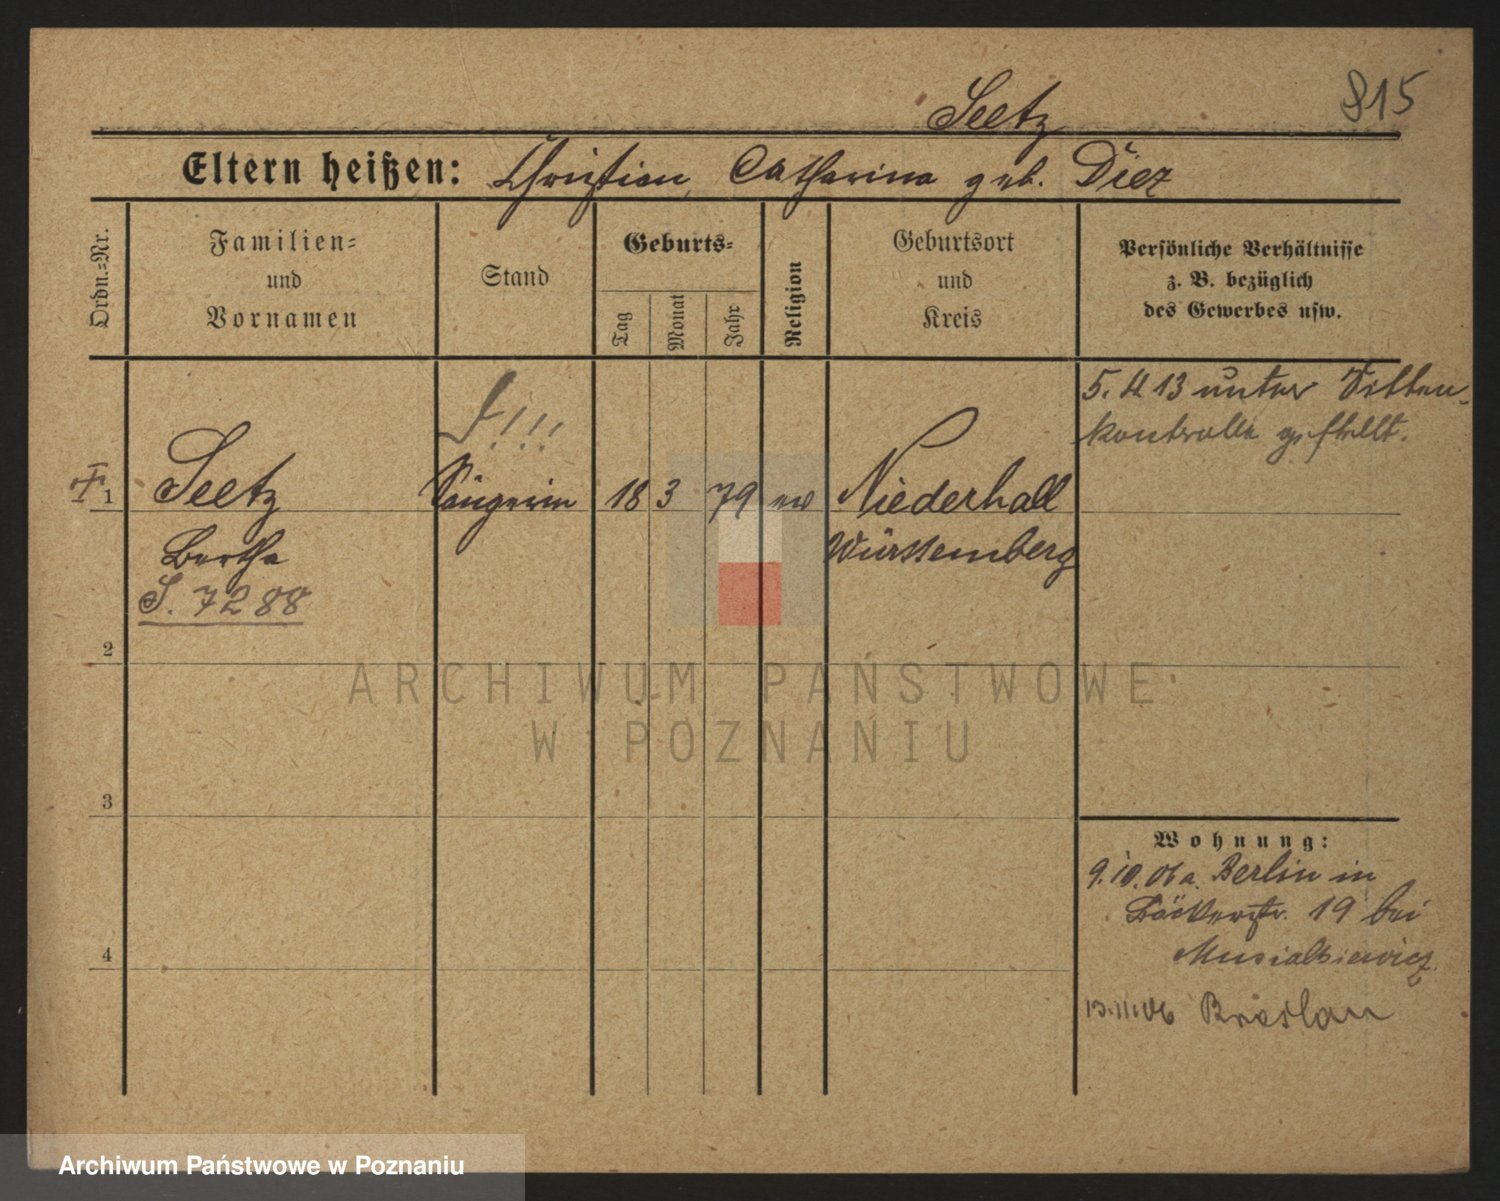 815
Seetz
Eltern heißen: Christian, Catharina geb. Diez
Ordn.=Nr.
Familien=
und
Vornamen
Stand
Geburts=
Tag
Monat
Jahr
Religion
Geburtsort
und
Kreis
Persönliche Verhältnisse
z. B. bezüglich
des Gewerbes usw.
!!!
5. 4 13 unter Sitten-
kontrolle gestellt.
1 Seetz Sängerin 18 3 79 ev Niederhall
Bertha Württemberg
S. 7288
2
ARCHIWUM PAŃSTWOWE
W POZNANIU
3
Wohnung:
9.10.06 a. Berlin in
Bäckerstr. 19 bei
4
13.11.06 Breslau
Archiwum Państwowe w Poznaniu